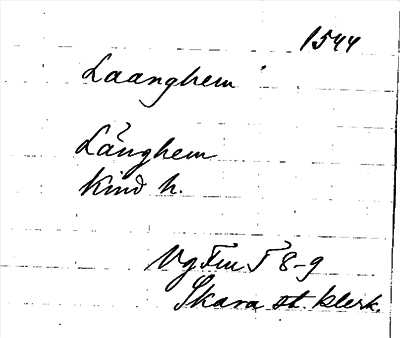 1544
Laanghem
Långhem
Kind h.
Vg Fm T 8-9
Skara st. klerk.